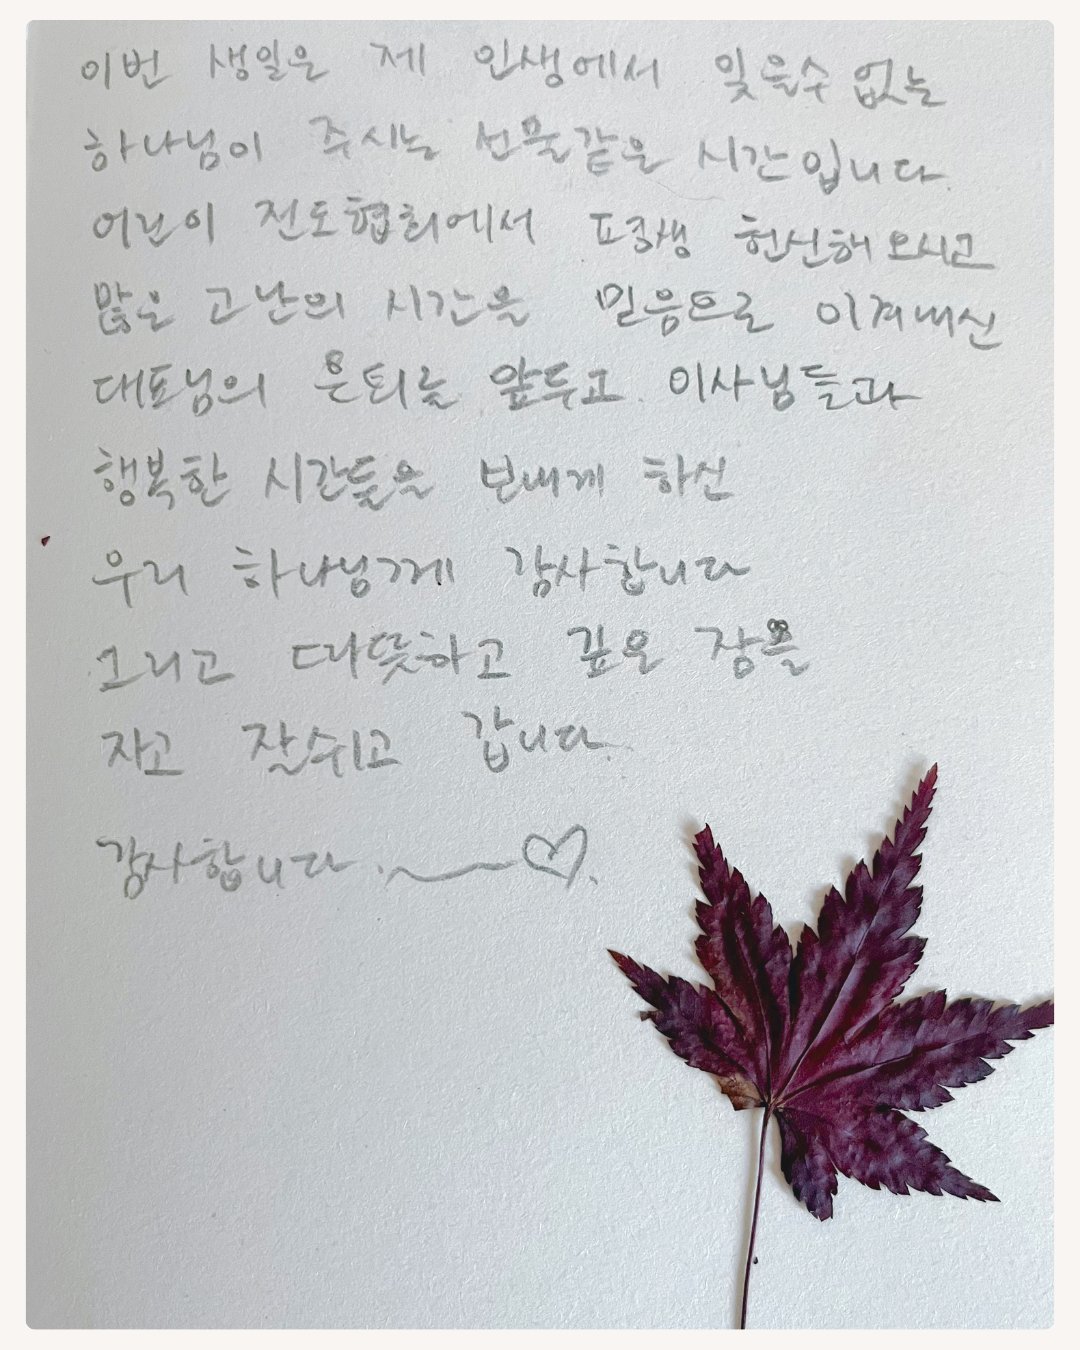 이번 생일은 제 인생에서 잊을수 없는
하나님이 주시는 선물같은 시간입니다.
어린이 전도협회에서 평생 헌신해 오시고
많은 고난의 시간을 믿음으로 이겨내신
대표님의 은퇴를 앞두고. 이사님들과
행복한 시간들을 보내게 하신
우리 하나님께 감사합니다
그리고 따뜻하고 깊은 잠을
자고 잘쉬고 갑니다.
감사합니다.